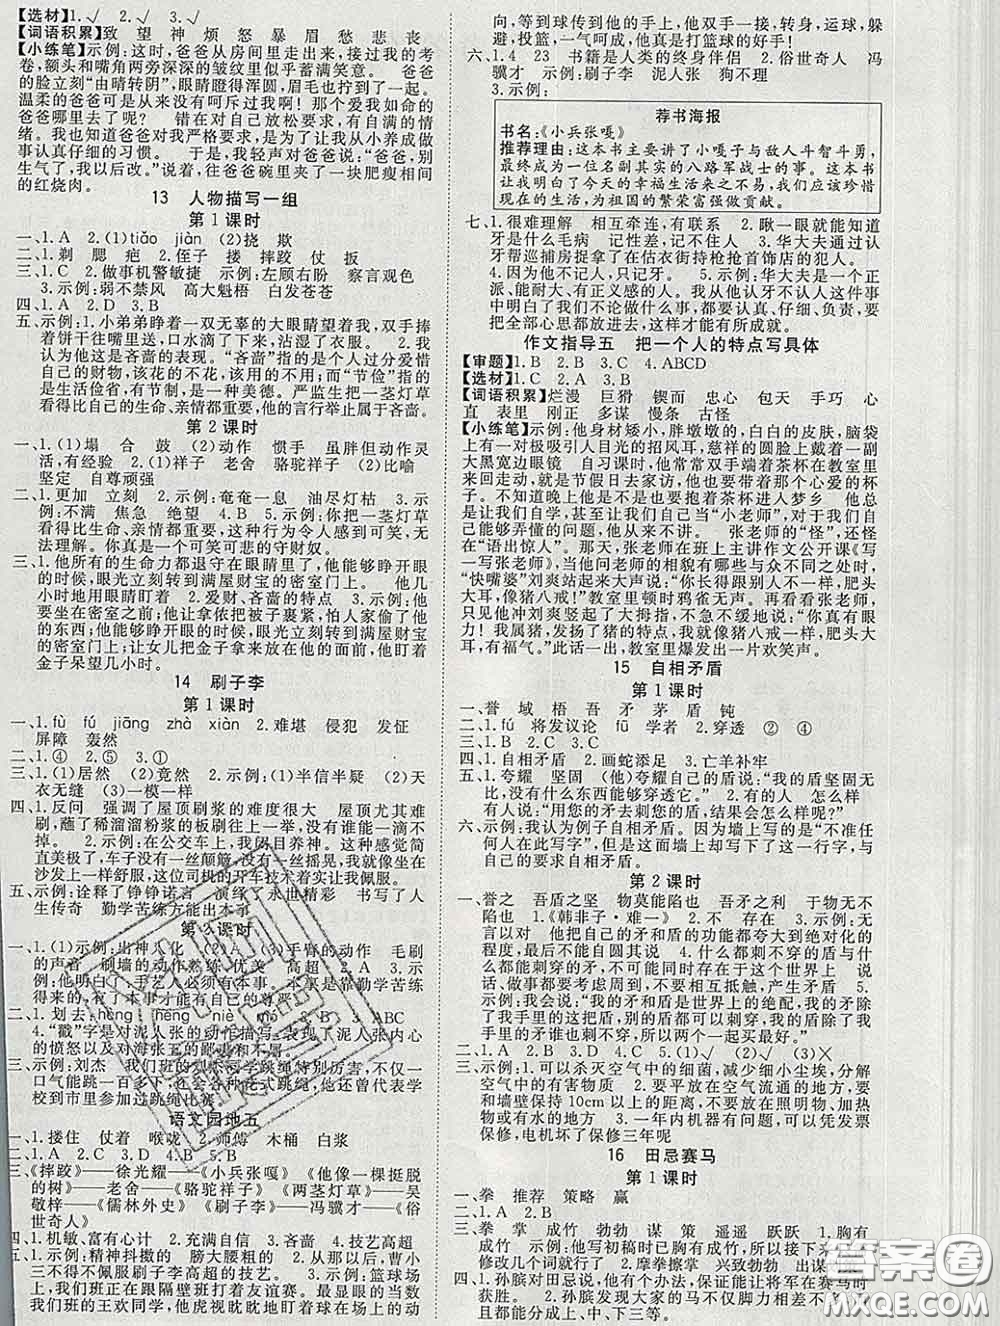 【选材】1.√ 2.√ 3.√
【词语积累】致 望 神 烦 怒 暴 眉 愁 悲 丧
【小练笔】示例:这时,爸爸从房间里走出来,接过我的考
卷,额头和嘴角两旁深深的皱纹里似乎蓄满笑意。 爸爸
的脸立刻“由晴转阴”,眼睛瞪得浑圆,眉毛拧到了一起。
温柔的爸爸可从来没有呵斥过我啊!那个爱我如命的
爸爸哪里去了呢? 错在对自己放松要求,有自满的情
绪。 爸爸之所以对我严格要求,其实是想让我从小养成做
事认真仔细的习惯。 于是,我轻声对爸爸说:“爸爸,别
生气了,我以后改。”说着,我给爸爸夹了一块肥瘦相间
的红烧肉。
13 人物描写一组
第1课时
一、1.A 2.(1)tiǎo jiàn (2)挠 欺
二、1.剃 腮 疤 2.侄子 搂 摔跤 仗 扳
三、1.C 2.做事机警敏捷 示例:左顾右盼 察言观色
3.示例:弱不禁风 高大魁梧 白发苍苍
四、1.A 2.D 3.B
五、示例:1.小弟弟睁着一双无辜的大眼睛望着我,双手捧
着饼干往嘴里送,口水滴了下来,沾湿了衣服。 2.不
同意,他这是吝啬的表现。“吝啬”指的是过分爱惜
自己的财物,该花的不花,该用的不用。而“节俭”指的
是生活俭省,有节制,是一种美德。严监生把一茎灯草
看得比自己的生命、亲情都重要,他的言行举止属于吝啬。
第2课时
一、1.(1)塌 合 鼓 (2)动作 惯手 虽胖但动作灵
活,有经验 2.(1)祥子 老舍 骆驼祥子 (2)比喻
坚定 自尊顽强
二、1.更加 立刻 2.示例:奄奄一息 油尽灯枯 3.示
例:不满 焦急 绝望 4.B 5.示例:严监生把一茎灯草
看得比生命、亲情都重要,这种行为令人感到疯狂,
无法理解。你真是一个可笑可悲的守财奴。
三、1.他所有的生命力都退守在眼睛里了,他能够睁开眼
的时候,眼光立刻转到满屋财宝的密室门上。 他几
小时地用眼睛盯着 2.爱财、吝啬的特点 3.示例:他
要坐在密室之前;他让拿依侬把被子裹紧,怕人家偷了他
的东西;他能够睁开眼的时候,眼光立刻转到满屋财宝
的密室门上;让女儿把金子给他放在面前,他盯着
金子呆望几小时。
14 刷子李
第1课时
一、1.fù fú jiāng zhà xiàn 2.难堪 侵犯 发怔
屏障 轰然
二、1.④ 2.⑤ 3.①
三、1.(1)居然 (2)竟然 2.示例:(1)半信半疑 (2)天
衣无缝 (3)一模一样
四、1.反问 强调了屋顶刷浆的难度很大 屋顶尤其难
刷,蘸了稀溜溜粉浆的板刷往上一举,谁能一滴不
掉? 2.示例:在公交车上,我闭目养神。这种感觉简
直美极了,车子没有一丝颠簸,没有一丝摇晃,我就像在
沙发上一样舒服,这位司机的开车技术着实让我佩服。
五、示例:诠释了铮铮诺言 演绎了永世精彩 书写了人
生传奇 勤学苦练方能出本事
第2课时
一、1.(1)示例:出神入化 (2)A (3)手臂的动作 毛刷
的声音 刷墙的动作熟练、优美 高超 2.A 3.示
例:他明白了:手艺人必须有本事,本事是靠勤学苦练
得来的;有了本事才能有自己的尊严。
二、1.划去:hèng nèng niè qiè 2.B 3.ABC
4.“戳”字是对泥人张的动作描写,表现了泥人张内心
的愤怒以及对海张五的鄙视和不屑。
三、示例:刘杰 我们班的刘杰同学跳绳特别厉害,不仅一
口气能跳一百多个,还会花式跳绳,他还曾代表学校
到市里参加过跳绳比赛。
语文园地五
一、1.搂住 仗着 喉咙 2.师傅 木桶 白浆
二、1.D 2.A 3.C 4.B 5.B
三、《摔跤》——徐光耀——《小兵张嘎》《他像一棵挺脱
的树》——老舍——《骆驼祥子》《两茎灯草》——吴
敬梓——《儒林外史》《刷子李》——冯骥才——《俗
世奇人》
四、1.机敏,富有心计 2.充满自信 3.吝啬 4.技艺高超
五、1.示例:精神抖擞的 膀大腰粗的 2.从那以后,曹小
三不得不佩服刷子李高超的技艺。 3.示例:篮球场
上,我们班正在跟隔壁班打友谊赛。随着一声哨响,
我们班的王欢同学,他虎视眈眈地盯着球在场上的动
向,等到球传到他的手上,他双手一接,转身,运球,躲
避,投篮,一气呵成,他真是打篮球的好手!
六、1.4 23 书籍是人类的终身伴侣 2.俗世奇人 冯
骥才 示例:刷子李 泥人张 狗不理
3.示例:
荐书海报
书名:《小兵张嘎》
推荐理由:这本书主要讲了小嘎子与敌人斗智斗勇,
最终成为一位名副其实的八路军战士的事。这本书
让我们明白了今天的幸福生活来之不易,我们应该珍惜
现在的生活,为祖国的繁荣富强做贡献。
七、1.很难理解 相互牵连,有联系 2.瞅一眼就能知道
牙是什么毛病 记性差,记不住 3.华大夫通过认
牙帮巡捕房捉拿了在估衣街持枪抢首饰店的犯人。
4.因为他不记人,只记牙。 5.示例:华大夫是一个正
派、能耐大、有正义感的人。我从华大夫这件事
中明白了我们不论做什么事,都要认真、仔细、负责,
要把全部心思都放进去,这样才能有所成就。
作文指导五 把一个人的特点写具体
【审题】1.B 2.B 3.C 4.ABCD
【选材】1.C 2.A 3.B
【词语积累】烂漫 巨猾 锲而 忠心 包天 手巧 心
直 表里 刚正 多谋 慢条 古怪
【小练笔】示例:他身材矮小,胖墩墩的,白白的皮肤,脑袋
上有一对吸引人目光的招风耳,慈祥的圆脸上戴着一副
大黑宽边眼镜 自习课时,他常常双手端着茶杯在教室里
来回走动,就是节假日去家访,他也带着茶杯
子 最后还要抱着茶杯进入梦乡 他总
是让我们自学,甚至让我们自己当“小老师”,对于我们自己
能够弄懂的问题,他从来不讲 张老师的“怪”,还怪
在“语出惊人”。那天,张老师在班上主讲作文公开课《写
一写张老师》,他问张老师的相貌有哪些与众不同之处时,
“快嘴婆”刘爽站起来大声说:“你长得跟别人不一样,肥头大
耳,像猪八戒!”教室里顿时鸦雀无声。再看看张老师,
只见他冲刘爽竖起了大拇指,不急不缓地说:“你真有眼
力!我属猪,发扬了猪的特点,我就像猪八戒一样,肥头大
耳,有福气。”此话一出,教室里爆发出一片欢笑声。
15 自相矛盾
第1课时
一、誉 域 梧 吾 矛 茅 盾 钝
二、1.fú 将发议论 fū 学者 2.穿透 ② ④
三、1.B 2.C 3.C
四、1.自相矛盾 2.画蛇添足 3.亡羊补牢
五、1.夸耀 坚固 (他)夸耀自己的盾说:“我的盾坚固无
比,没有什么东西能够穿透它。” 2.有的人 怎么样
有人说:“用您的矛去刺您的盾,结果会怎么样呢?”
六、示例:我认为例子自相矛盾。因为墙上写的是“不准任
何人在此写字”,但是这面墙上却写下了这一行字,与
自己的要求自相矛盾。
第2课时
一、誉之 吾盾之坚 物莫能陷也 吾矛之利 于物无不
陷也 1.《韩非子·难一》 2.不 存在 3.示例:
无言以对 他把自己的矛和盾的功能都夸大到绝对化的
程度,最后陷入不能自圆其说 4.什么都刺不穿的矛与什
么都能刺穿的矛,不可能同时存在于这个世界上 说
话、做事都要考虑周到,不要互相抵触,产生矛盾 5.
示例:我会说:“我的矛和盾是世界上的绝配,我的矛到了
我手里什么都能刺穿,别人的矛却刺不穿我的盾,我手
里的矛谁也刺不穿,所以两个一起买最好。”
二、1.A 2.B 3.D 4.C 5.(1)√ (2)√ (3)×
三、示例:1.可以杀灭空气中的细菌,减少细小尘埃,分解
空气中的有害物质 2.要放在空气流通的地方,要
和墙壁保持10cm以上的距离,不要放在照明物、加热物
或有水的地方 3.一年内机器有问题可以凭发票
保修,电机坏了保修三年呢
16 田忌赛马
第1课时
一、拳 推荐 策略 赢
二、1.A 2.B
三、拳 掌 成竹 勃勃 谋 策 遥遥 跃跃 1.胸有
成竹 示例:他写初稿时已胸有成竹,所以接下来
修改几个词就行了 2.摩拳擦掌 兴致勃勃 出谋
四、1.孙膑对田忌说,他有办法,保证能让田忌在赛马时
获胜。 2.孙膑发现大家的马不仅脚力相差不多,而
且都能分成上、中、下三等。
答案圈
MXQE.COM